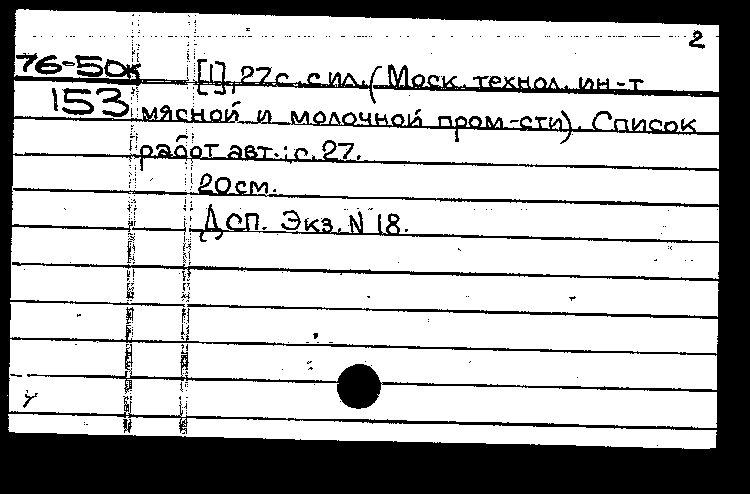 2
76-50к [1], 27с. с ил. (Моск. технол. ин-т
153 мясной и молочной пром-сти). Список
работ авт.: с. 27.
20см.
Дсп. Экз. N 18.